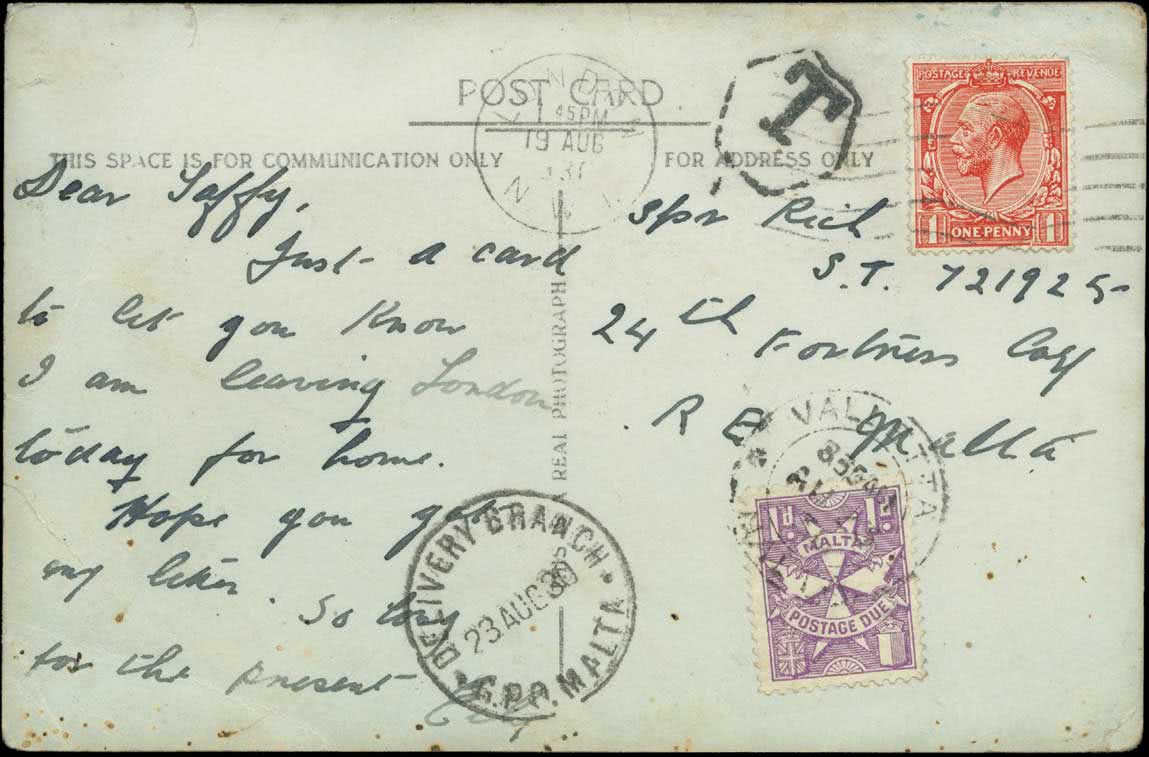 POST CARD
THIS SPACE IS FOR COMMUNICATION ONLY
FOR ADDRESS ONLY
LONDON
1 45PM
19 AUG
N.W.1
T
POSTAGE REVENUE
1 ONE PENNY 1
Dear Taffy,
Just a card
to let you know
I am leaving London
today for home.
Hope you got
my letter. So long
for the present
Spr Rich
S.T. 721925
24th Fortress Coy
R E Malta
A REAL PHOTOGRAPH
DELIVERY BRANCH
23 AUG 30
G.P.O. MALTA
VALLETTA
MALTA
1d. 1d.
MALTA
POSTAGE DUE